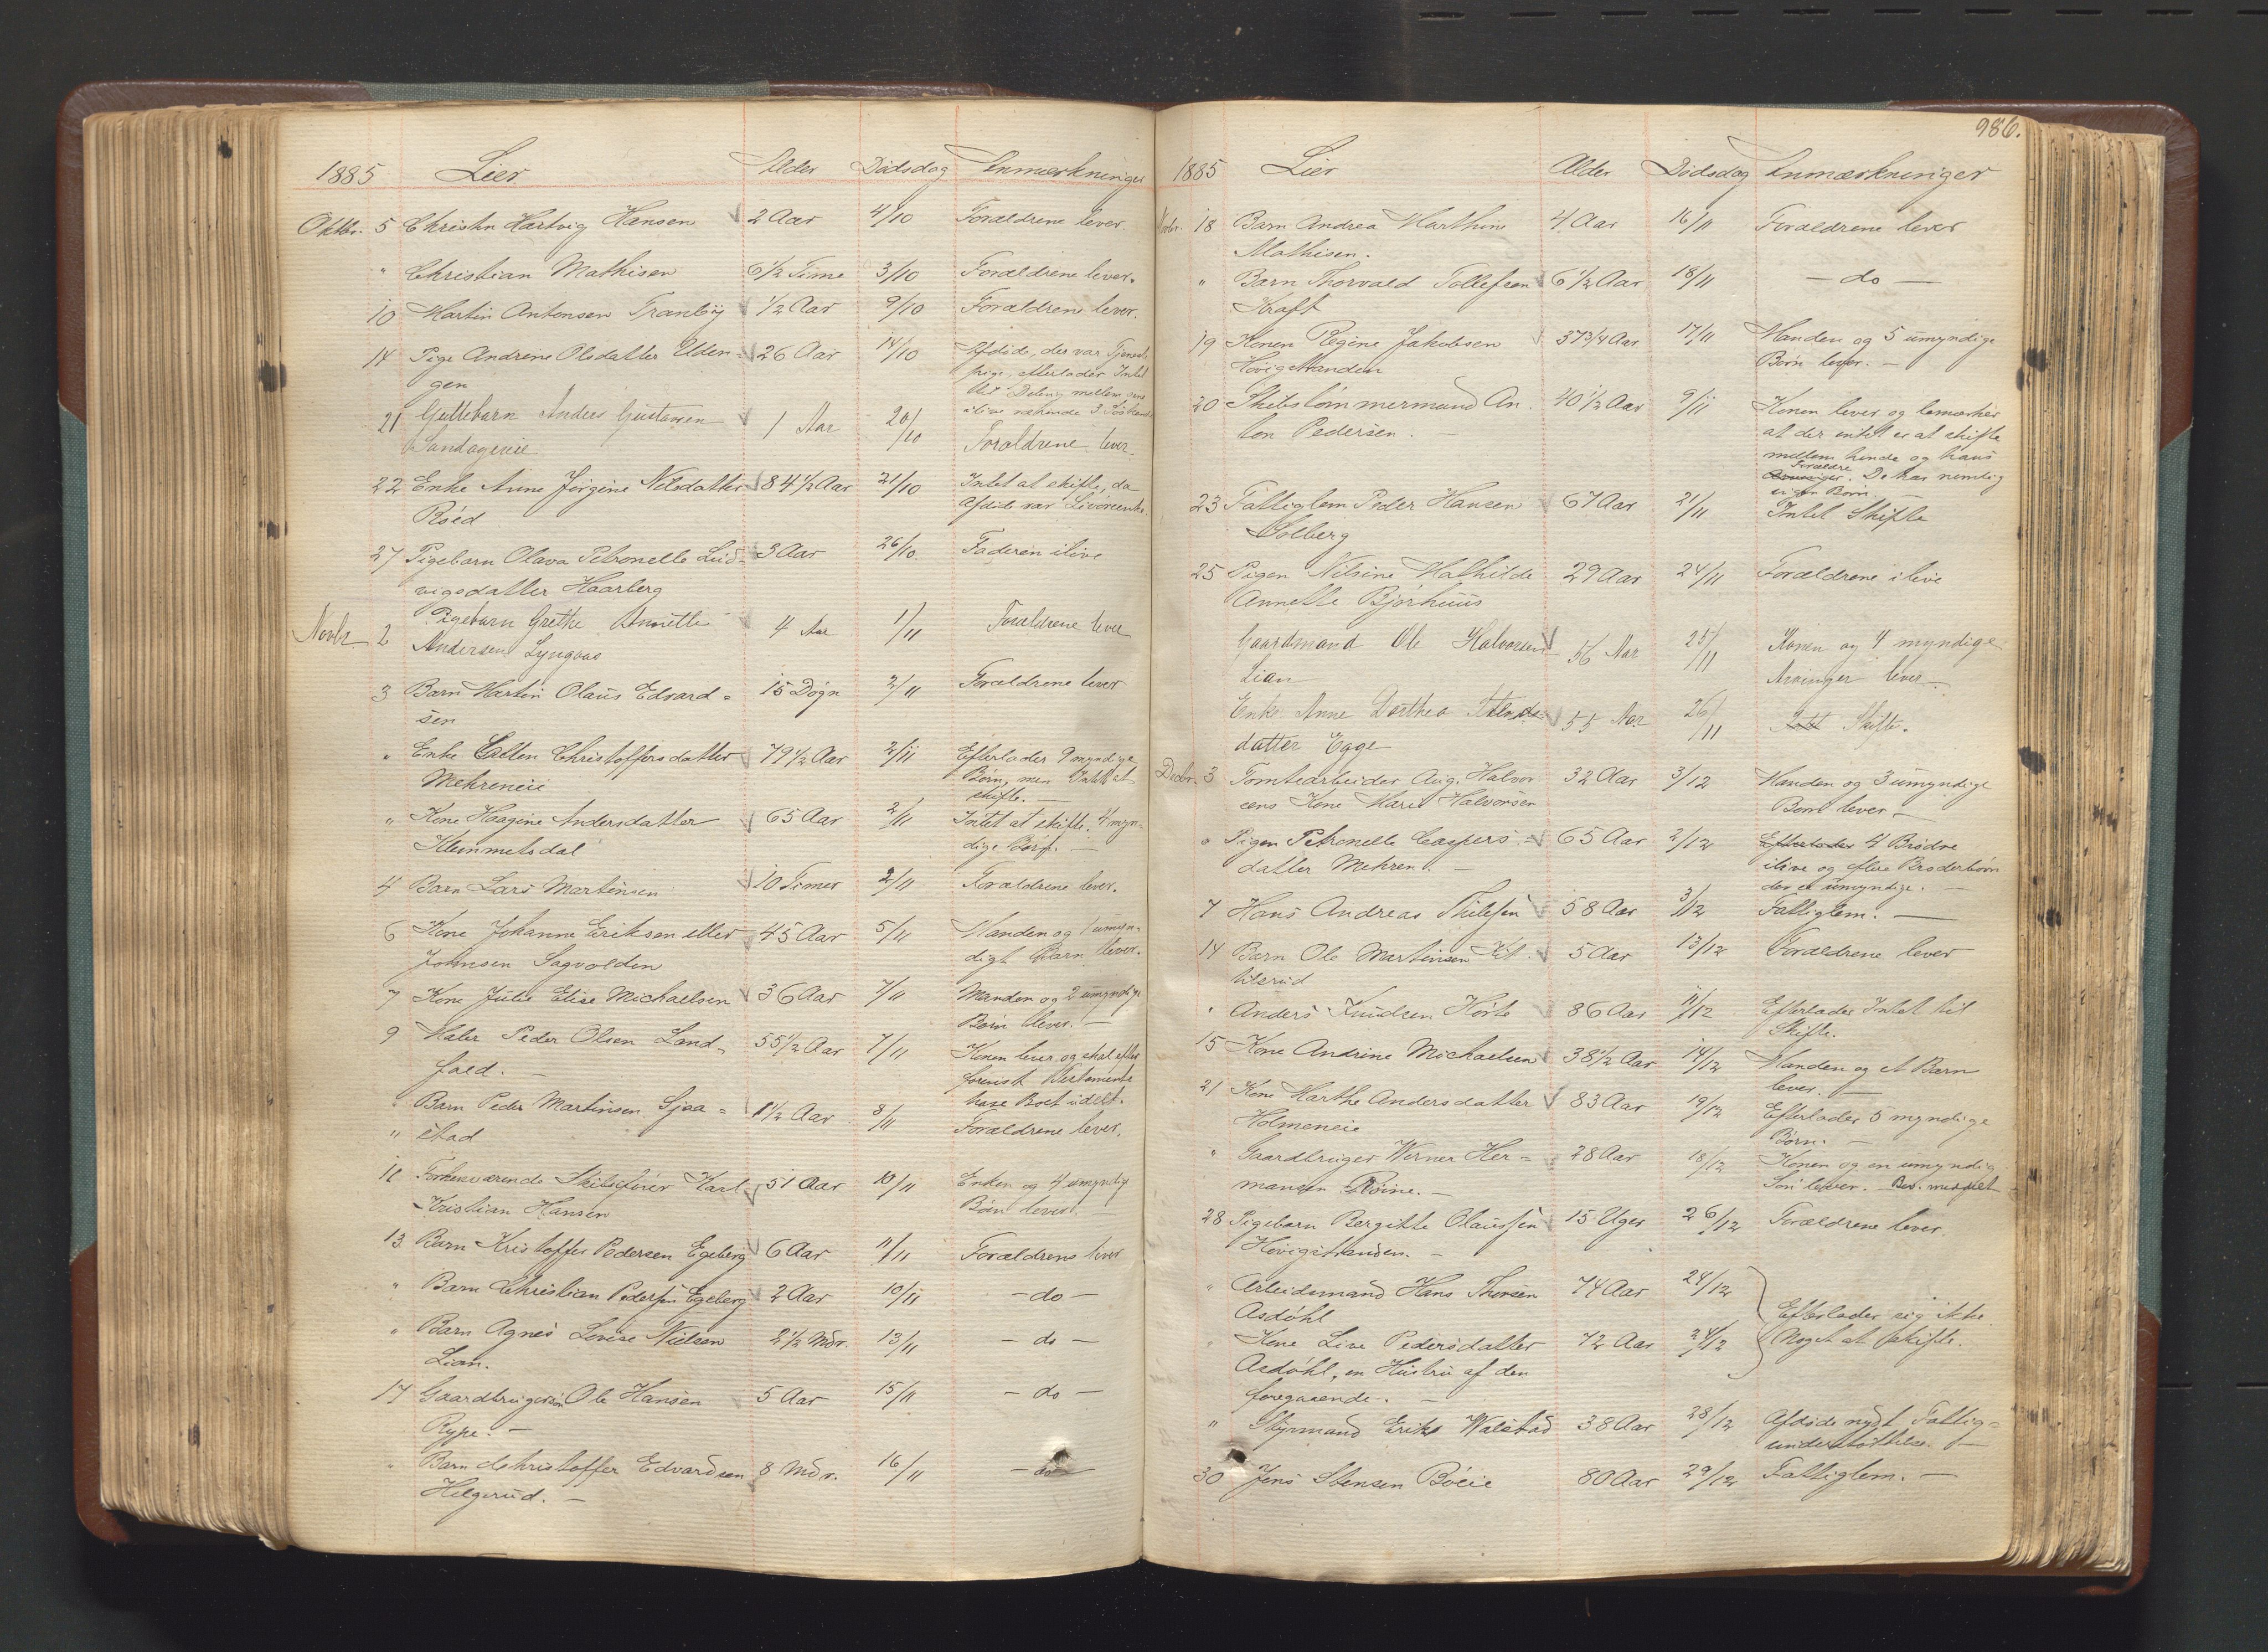 1885 Lier Alder Dødsdag Anmærkninger
Oktbr. 5 Christn Hartvig Hansen 2 Aar 4/10 Forældrene lever.
" Christian Mathisen 6 1/2 Time 3/10 Forældrene lever.
10 Martin Antonsen Tranby 1/2 Aar 9/10 Forældrene lever.
14 Pige Andrene Olsdatter Uden- 26 Aar 14/10 Afdøde, der var Tjeneste
gen pige, efterlader Intet
til Deling mellem sine
ilive værende 3 Søskende
21 Guttebarn Anders Gustavsen 1 Aar 20/10 Forældrene lever.
22 Enke Anne Jørgine Nilsdatter 84 1/2 Aar 21/10 Intet at skifte, da
Røed Afdøde var
27 Pigebarn Olava Petronelle Lud- 3 Aar 26/10. Faderen ilive
vigsdatter Haarberg
Novbr. 2 Pigebarn Grethe Annette 4 Aar 1/11 Forældrene lever
Andersen Lyngaas
3 Barn Martin Olaus Edvard- 15 Døgn 2/11 Forældrene lever
sen
" Enke Christoffersdatter 79 1/2 Aar 2/11 Efterlader 9 myndige
Mehreneie Børn, men Intet at
skifte. —
" Kone Haagine Andersdatter 65 Aar 2/11 Intet at skifte. 4 myn-
Klemmetsdal dige Børn. —
4 Barn Lars Martinsen 10 Timer 2/11 Forældrene lever.
6 Kone Johanne Eriksen eller 45 Aar 5/11 Manden og 1 umyn-
Johnsen Sagvolden digt Barn lever.
7 Kone Julie Elise Michaelsen 36 Aar 7/11 Manden og 2 umyndige
Børn lever. —
9 Maler Peder Olsen Land- 55 1/2 Aar 7/11 Konen lever og skal efter
fald. — Testamente
have Boet udelt.
" Barn Peder Martinsen Sjaa- 1 1/2 Aar 8/11 Forældrene lever.
" stad
11 Forhenværende Skibsfører Karl 51 Aar 10/11 Enken og 4 umyndig
Kristian Hansen Børn lever. —
13 Barn Kristoffer Pedersen Egeberg 6 Aar 11/11 Forældrene lever
" Barn Christian Pedersen Egeberg 2 Aar 10/11 — do —
" Barn Agnes Lovise Nielsen 2 1/2 Mdr. 13/11 — do —
Lian.
17 Gaardbrugersøn Ole Hansen 5 Aar 15/11 — do —
Rype. —
" Barn Christoffer Edvardsen 8 Mdr. 16/11 — do —
Helgerud. —
986.
1885 Lier Alder Dødsdag Anmærkninger
Novbr. 18 Barn Andrea Marthine 4 Aar 16/11 Forældrene lever
Mathisen.
" Barn Thorvald Tollefsen 6 1/2 Aar 18/11 — do —
Kraft
19 Konen Regine Jakobsen 37 3/4 Aar 17/11 Manden og 5 umyndige
Høvigstranden Børn lever. —
20 Skibstømmermand An- 40 1/2 Aar 9/11 Konen lever og bemærker
ton Pedersen. — at der intet er at skifte
mellem hende og hans
Forældre. De har nemlig
ingen Børn.
23 Fattiglem Peder Hansen 67 Aar 21/11 Intet Skifte
Solberg
25 Pigen Nilsine Mathilde 29 Aar 24/11 Forældrene ilive
Annette Bjørhuus
Gaardmand Ole Halvorsen 56 Aar 25/11 Konen og 4 myndige
Lian Arvinger lever.
Enke Anne Dorthea 55 Aar 26/11 Intet Skifte.
datter Egge
Decbr. 3 Tomtearbeider Aug. Halvor- 32 Aar 3/12 Manden og 3 umyndige
sens Kone Marie Halvorsen Børn lever —
" Pigen Petronelle Caspers- 65 Aar 2/12 Efterlader 4 Brødre
datter Mehren. — ilive og flere Broderbørn
der er umyndige. —
7 Hans Andreas Thilesen 58 Aar 3/12 Fattiglem. —
14 Barn Ole Martinsen Kit- 5 Aar 13/12 Forældrene lever
tilsrud
" Anders Knudsen Hørte 86 Aar 11/12 Efterlader Intet til
Skifte.
15 Kone Andrine Michaelsen 38 1/2 Aar 14/12 Manden og et Barn
lever. —
21 Kone Marthe Andersdatter 83 Aar 19/12 Efterlader 5 myndige
Holmeneie Børn. —
" Gaardbruger Werner Her- 28 Aar 18/12 Konen og en umyndig
mansen Røine. — Søn lever. — Bev. meddelt
28 Pigebarn Bergitte Olaussen 15 Uger 26/12 Forældrene lever.
Høvigstranden. —
" Arbeidsmand Hans Thorsen 74 Aar 24/12
Asdøhl Efterlader sig ikke
" Kone Live Pedersdatter 72 Aar 24/12 Noget at skifte.
Asdøhl, en Hustru af den
foregaaende. —
" Styrmand Erik Walstad 38 Aar 28/12 Afdøde nydt Fattig-
understøttelse. —
30 Jens Stensen Bøeie 80 Aar 29/12 Fattiglem. —